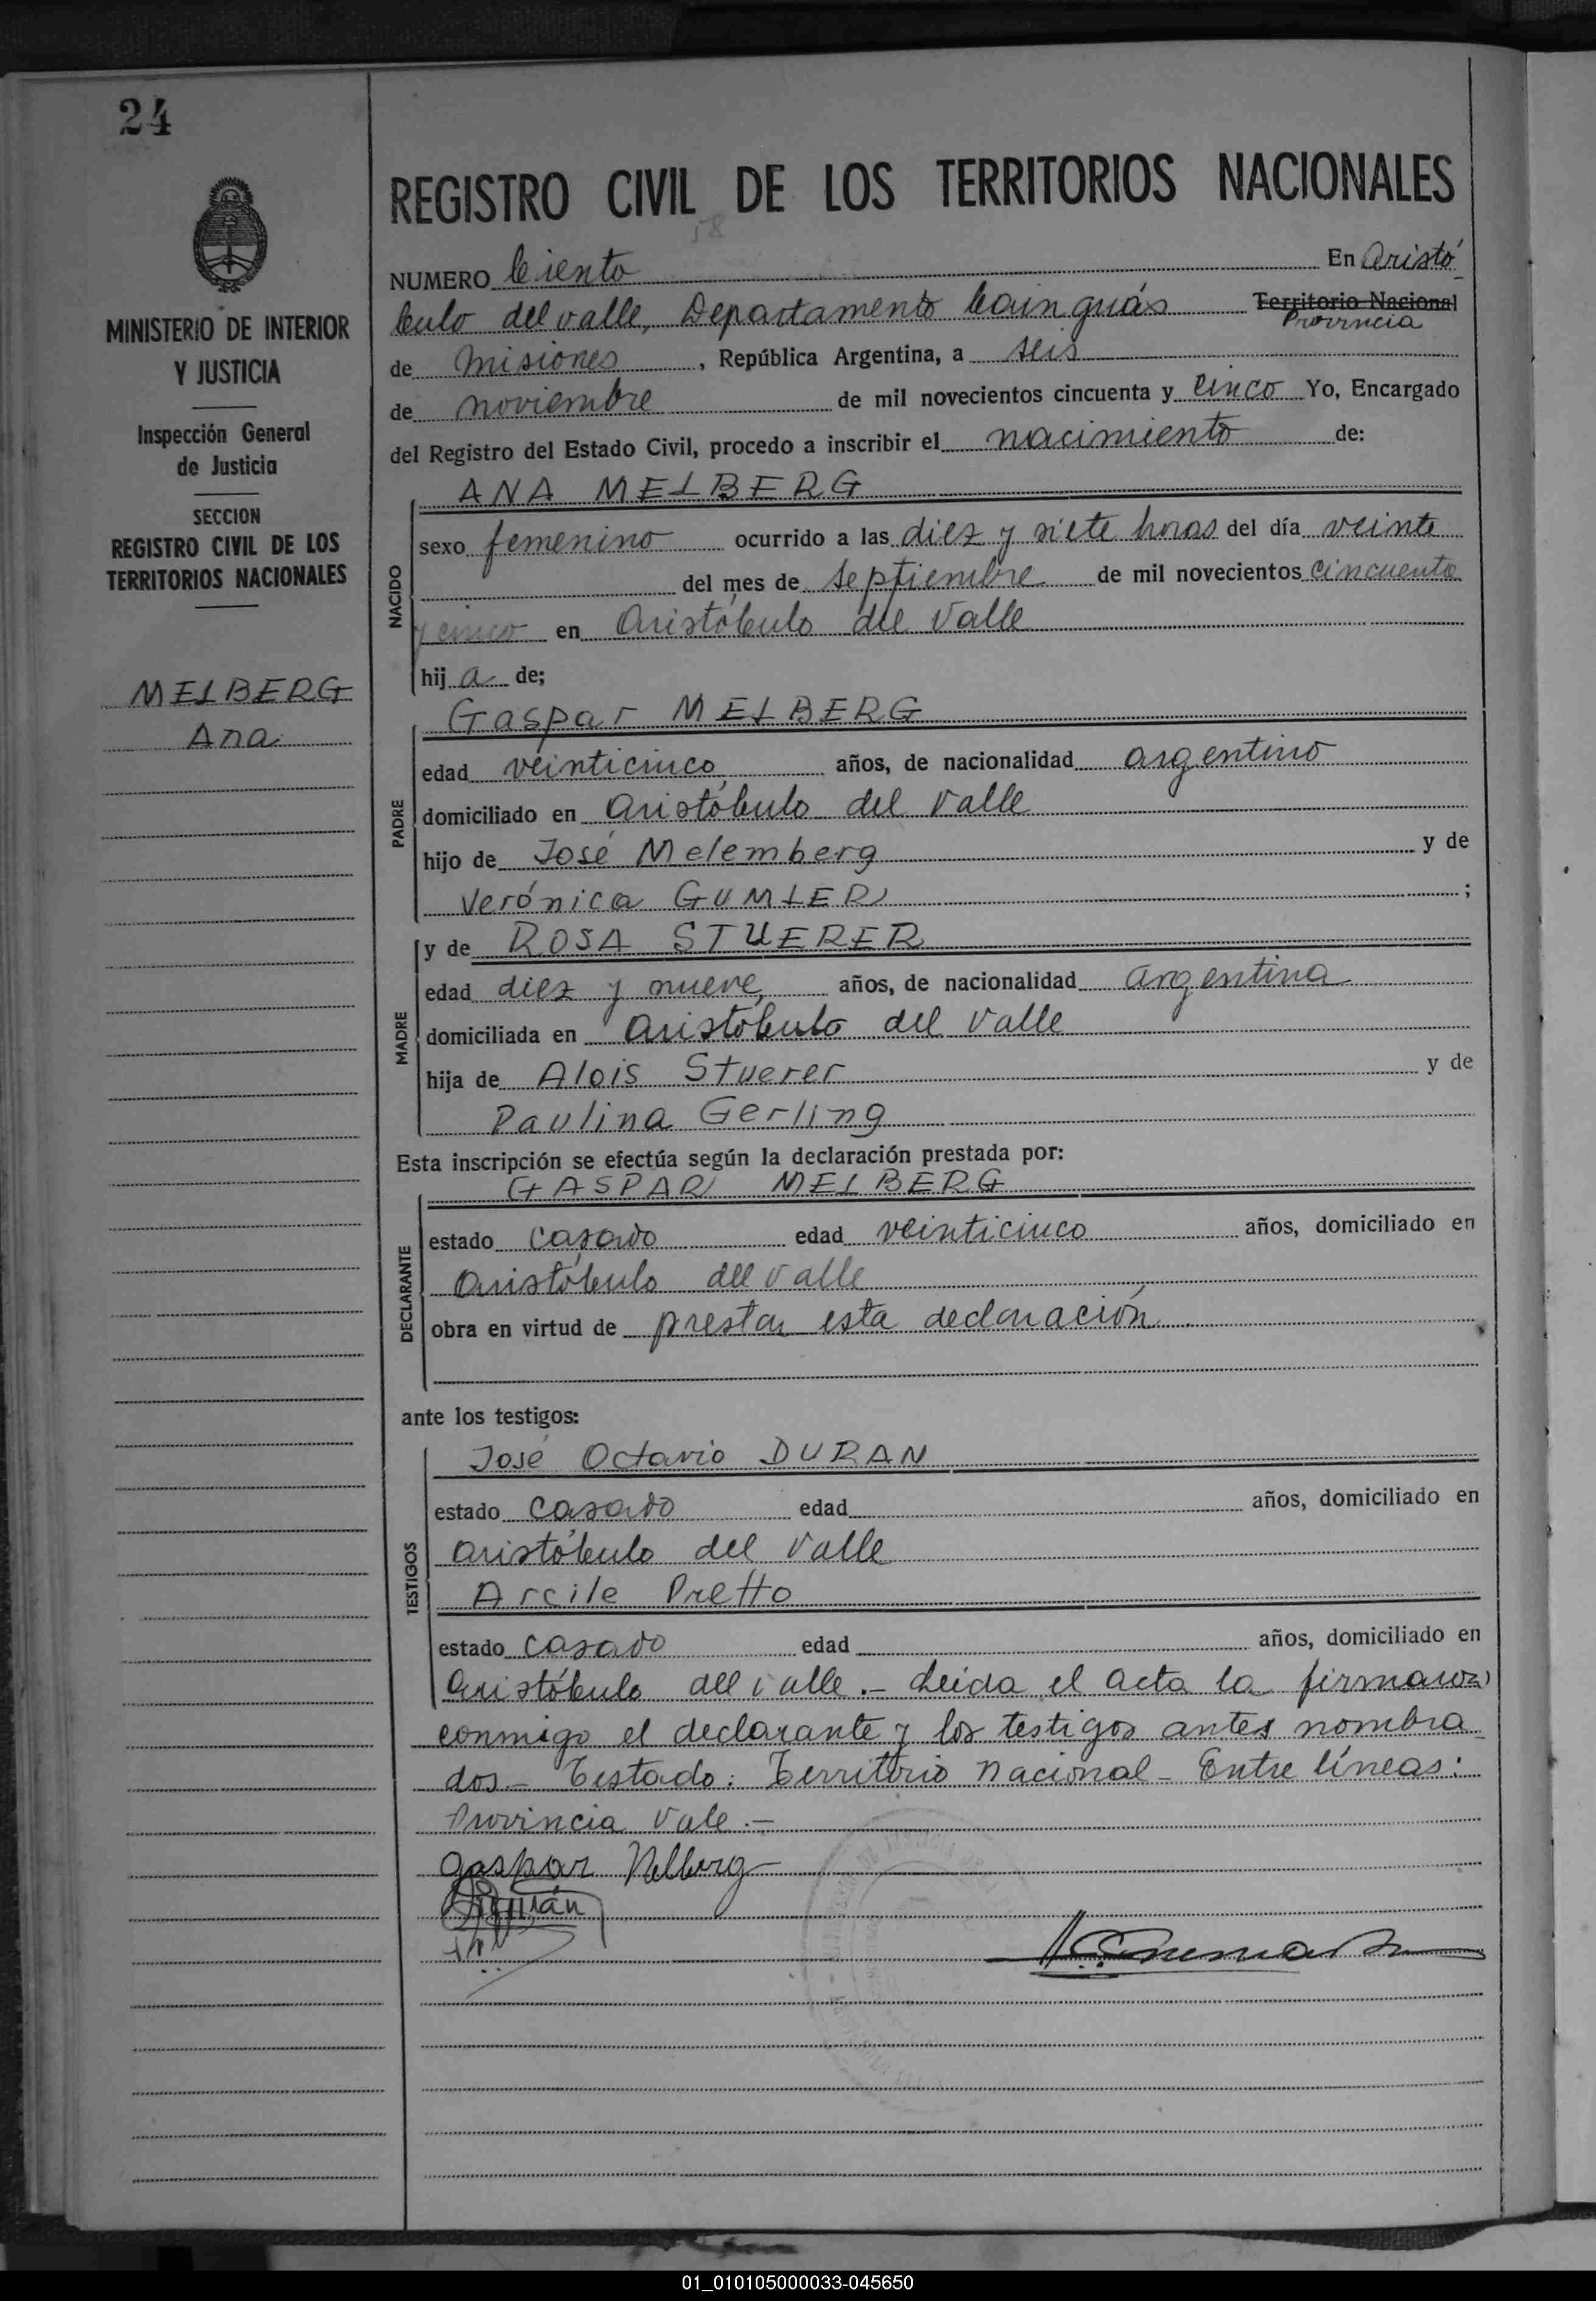 24
MINISTERIO DE INTERIOR
Y JUSTICIA
Inspección General
de Justicia
SECCION
REGISTRO CIVIL DE LOS
TERRITORIOS NACIONALES
MELBERG
Ana
REGISTRO CIVIL DE LOS TERRITORIOS NACIONALES
58
NUMERO Ciento En Aristó
bulo del valle, Departamento Cainguás Territorio Nacional
Provincia
de Misiones, República Argentina, a seis
de noviembre de mil novecientos cincuenta y cinco Yo, Encargado
del Registro del Estado Civil, procedo a inscribir el nacimiento de:
ANA MELBERG
NACIDO
sexo femenino ocurrido a las diez y siete horas del día veinte
del mes de septiembre de mil novecientos cincuenta
y cinco en Aristóbulo del Valle
hija de;
Gaspar MELBERG
PADRE
edad veinticinco años, de nacionalidad argentino
domiciliado en Aristóbulo del Valle
hijo de José Melemberg y de
Verónica GUMLER;
y de ROSA STUERER
MADRE
edad diez y nueve, años, de nacionalidad argentina
domiciliada en Aristóbulo del Valle
hija de Alois Stuerer y de
Paulina Gerling
Esta inscripción se efectúa según la declaración prestada por:
GASPAR MELBERG
DECLARANTE
estado casado edad veinticinco años, domiciliado en
Aristóbulo del Valle
obra en virtud de prestar esta declaración.
ante los testigos:
José Octavio DURAN
TESTIGOS
estado casado edad años, domiciliado en
Aristóbulo del Valle
Arcile Pretto
estado casado edad años, domiciliado en
Aristóbulo del Valle.- Leida el acta la firmaron
conmigo el declarante y los testigos antes nombra
dos.- Testado: Territorio Nacional - Entre líneas:
Provincia Vale.-
Gaspar Melberg
01_010105000033-045650